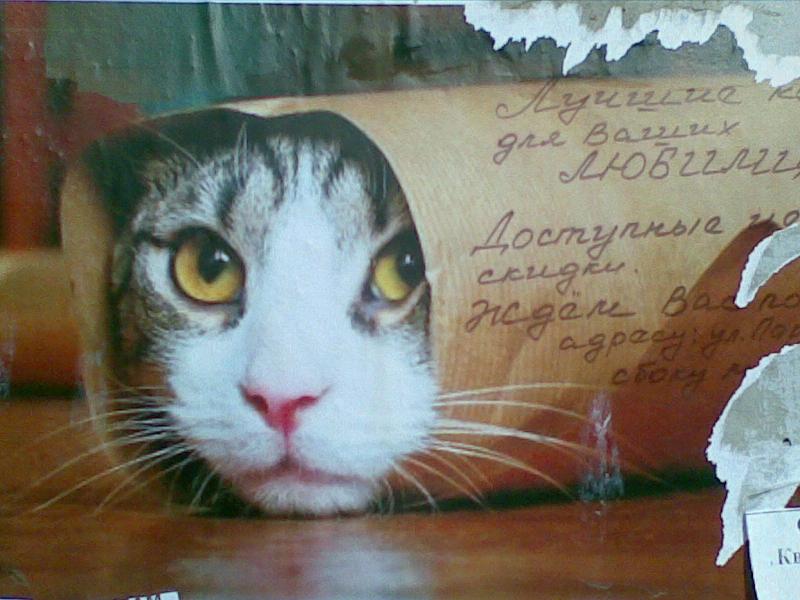 Лучшие
для Ваших
ЛЮБИМИ
Доступные
скидки.
Ждём Вас по
адресу: ул.
сбоку
Кв